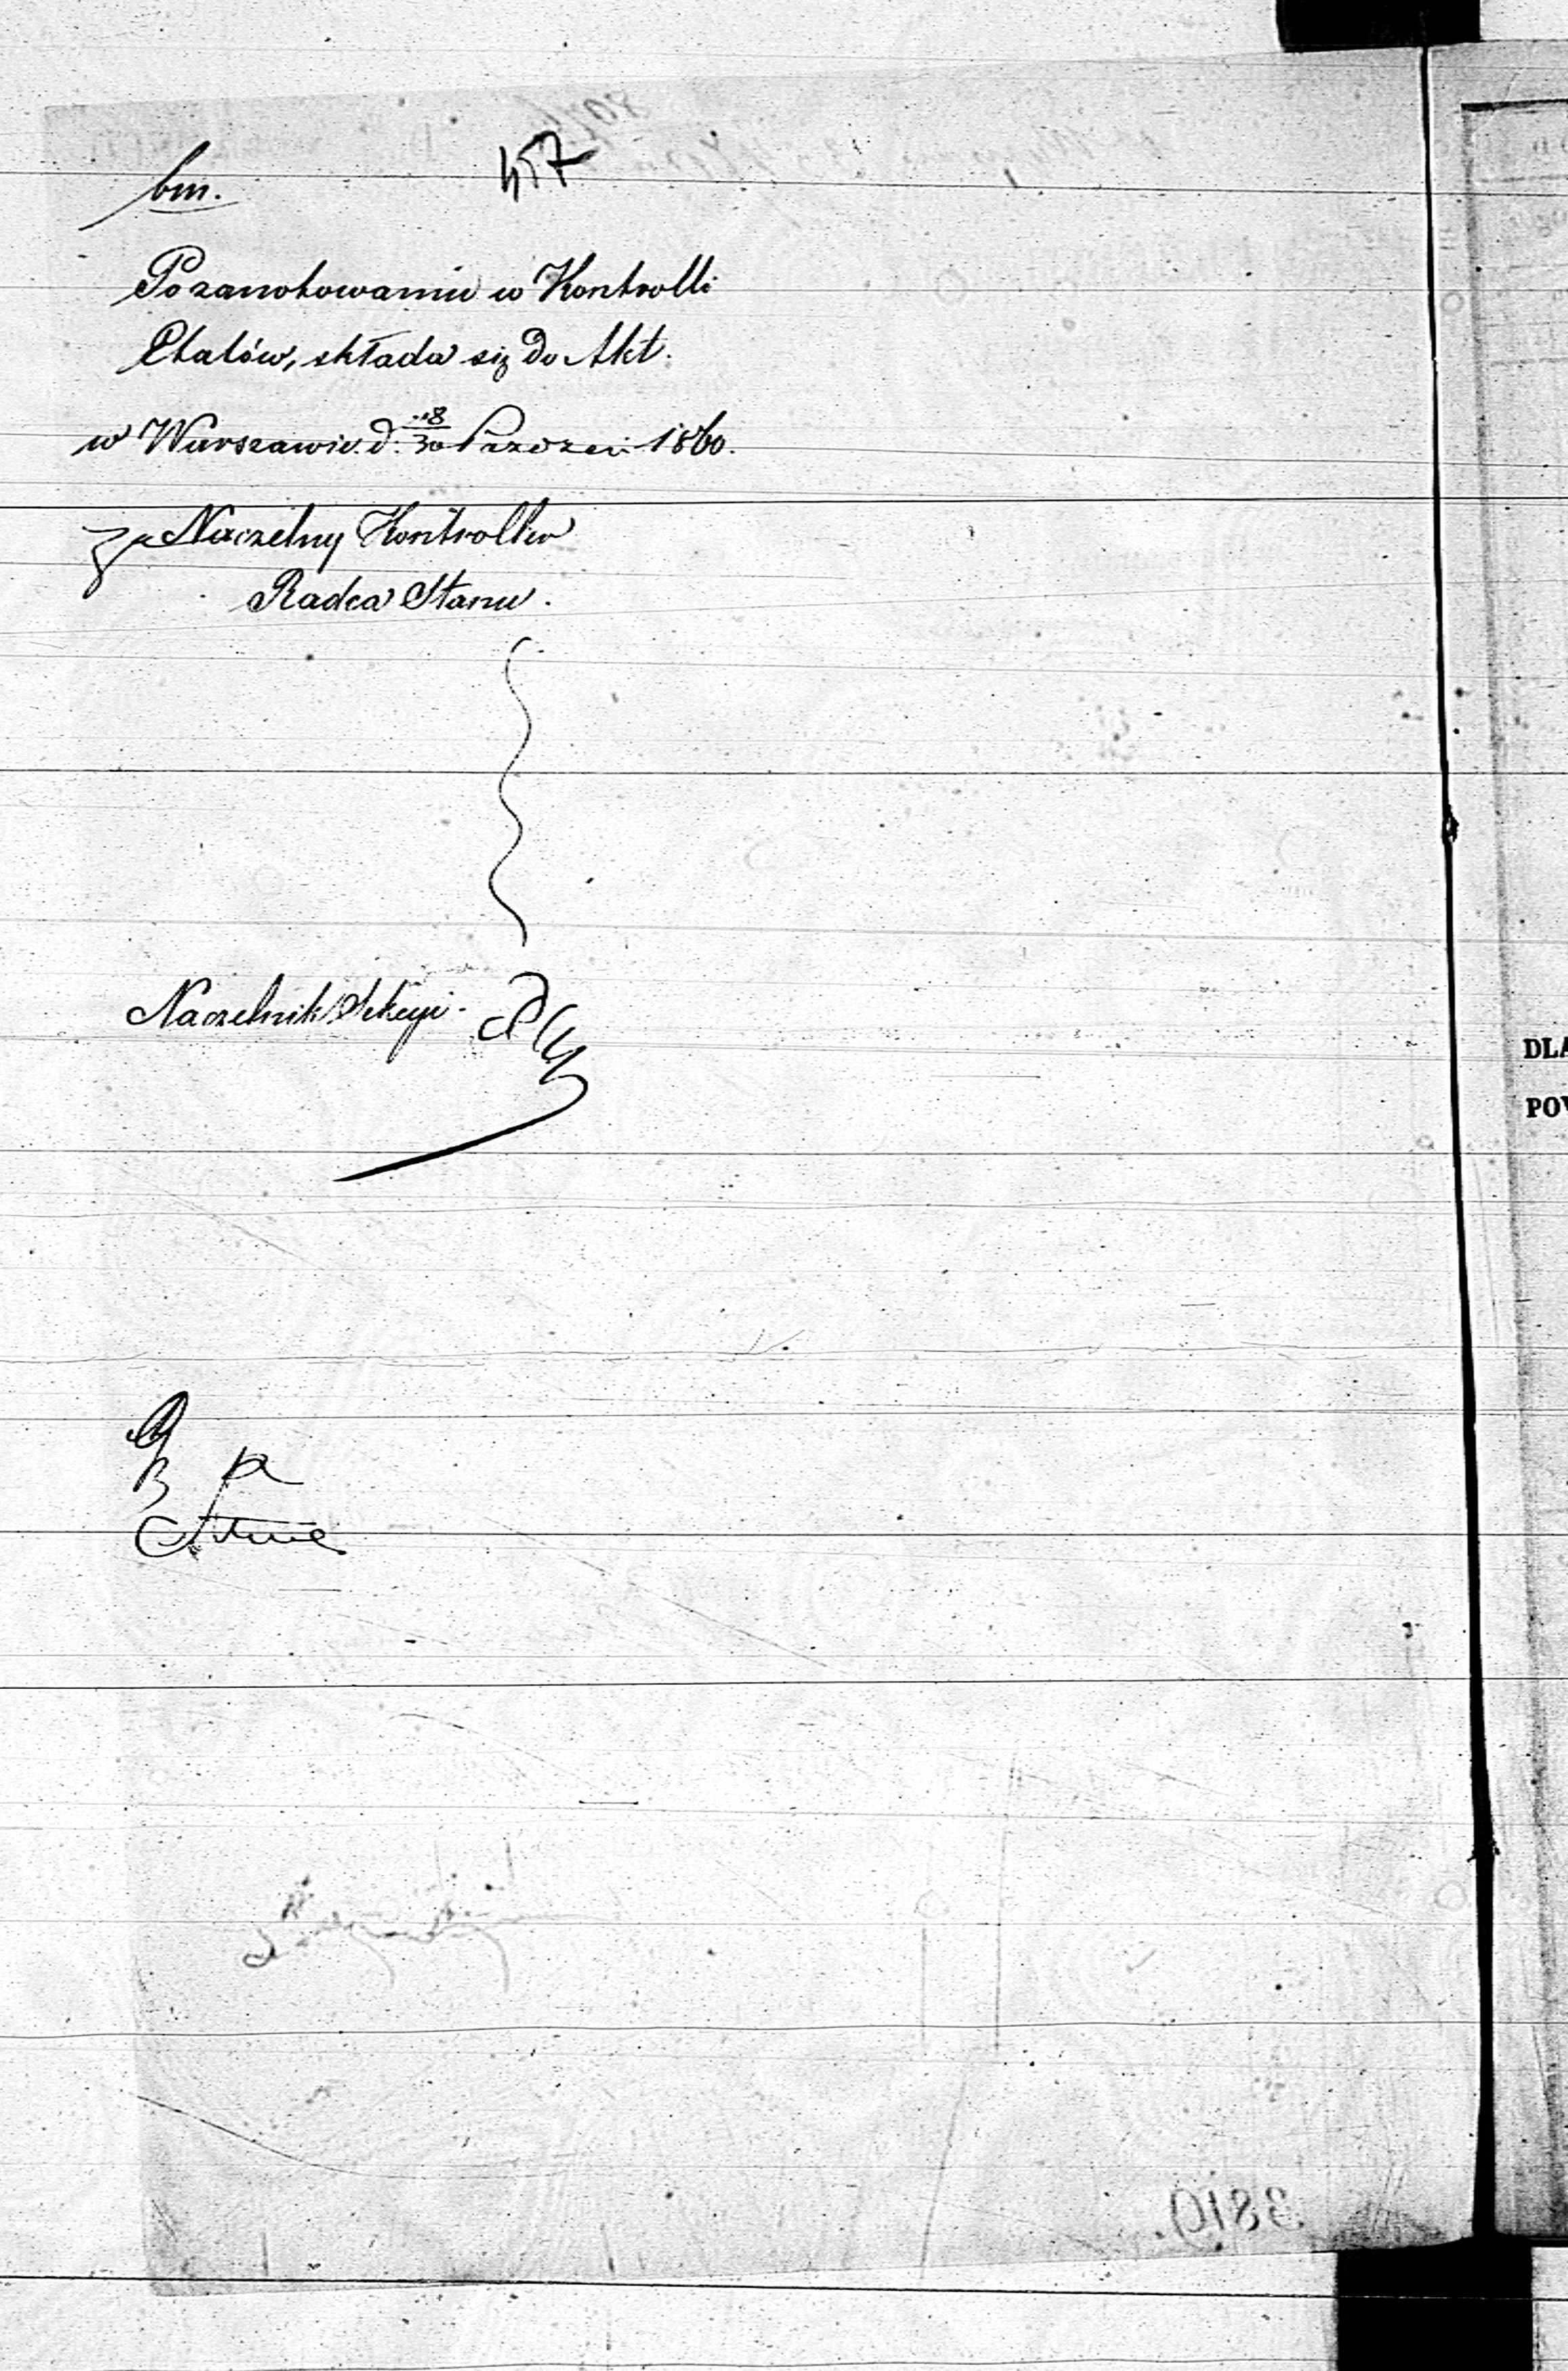 bm. 457
Po zanotowaniu w Kontrolli
Etatów, składa się do Akt.
w Warszawie d. 18/30 Paździer 1860.
za Naczelny Kontroller
Radca Stanu.
Naczelnik Sekcyi.
3810.
DLA
POW